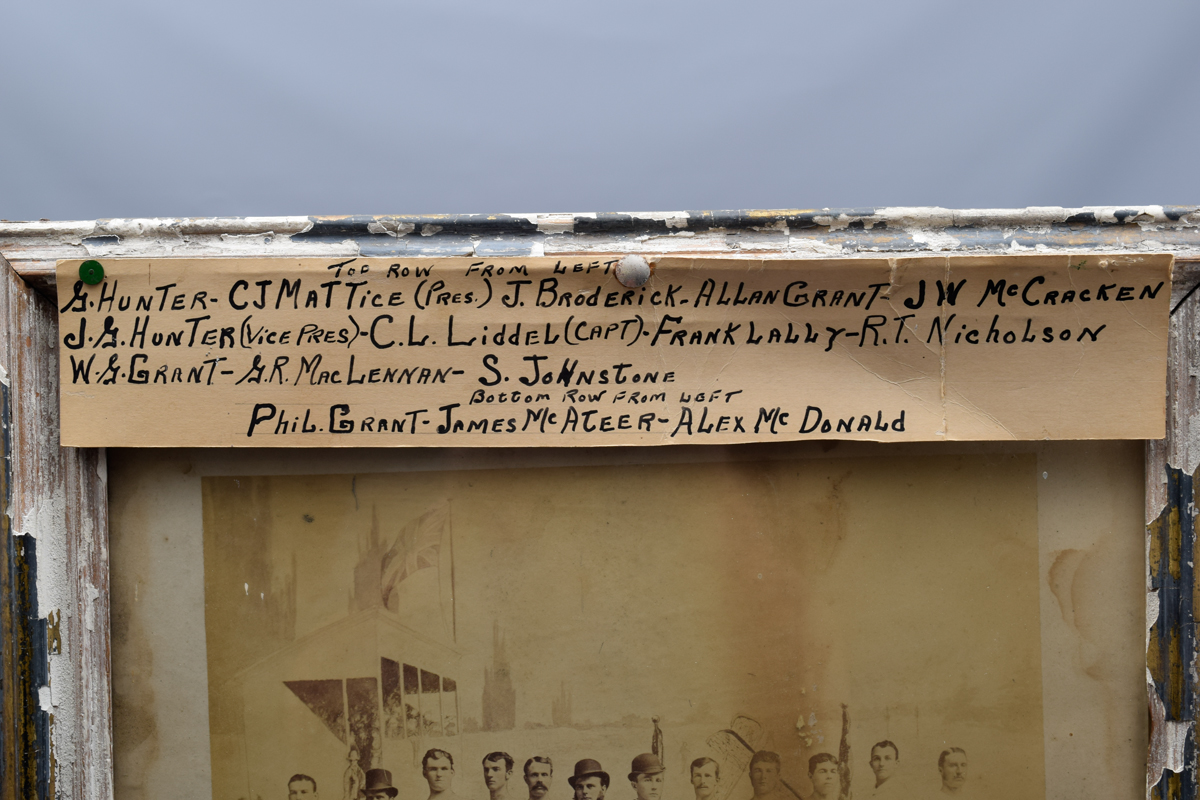 TOP ROW FROM LEFT
G. HUNTER - CJ MATTICE (PRES.) J. BRODERICK - ALLAN GRANT - JW McCRACKEN
J. G. HUNTER (VICE PRES) - C. L. LIDDEL (CAPT) - FRANK LALLY - R.T. NICHOLSON
W. G. GRANT - G. R. MACLENNAN - S. JOHNSTONE
BOTTOM ROW FROM LEFT
PHIL. GRANT - JAMES McATEER - ALEX Mc DONALD